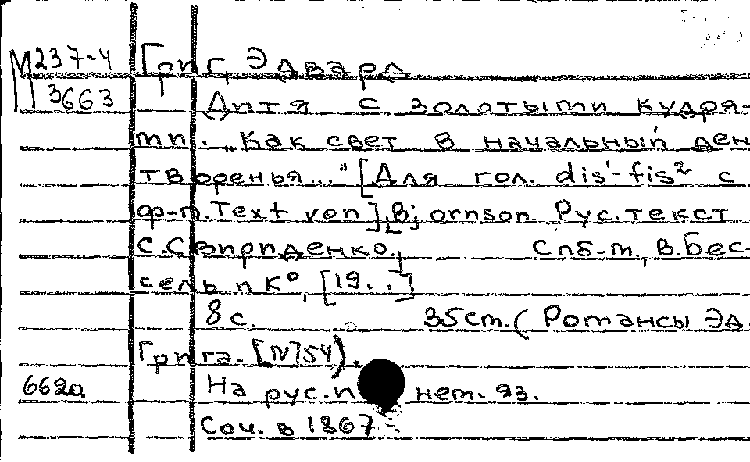 М 237-4 Григ, Эдвард
3663 Дитя с золотыми кудря-
ми. „Как свет в начальный ден
творенья..." [Для гол. dis¹-fis² с
ф-п. Text von], Bjornson Рус. текст
С. Свириденко.] Спб-М, В. Бес-
сель и К°, [19..]
8 с. 35 cm. (Романсы Эд.
Грига. [№54).
662a На рус. и нем. яз.
Соч. в 1867